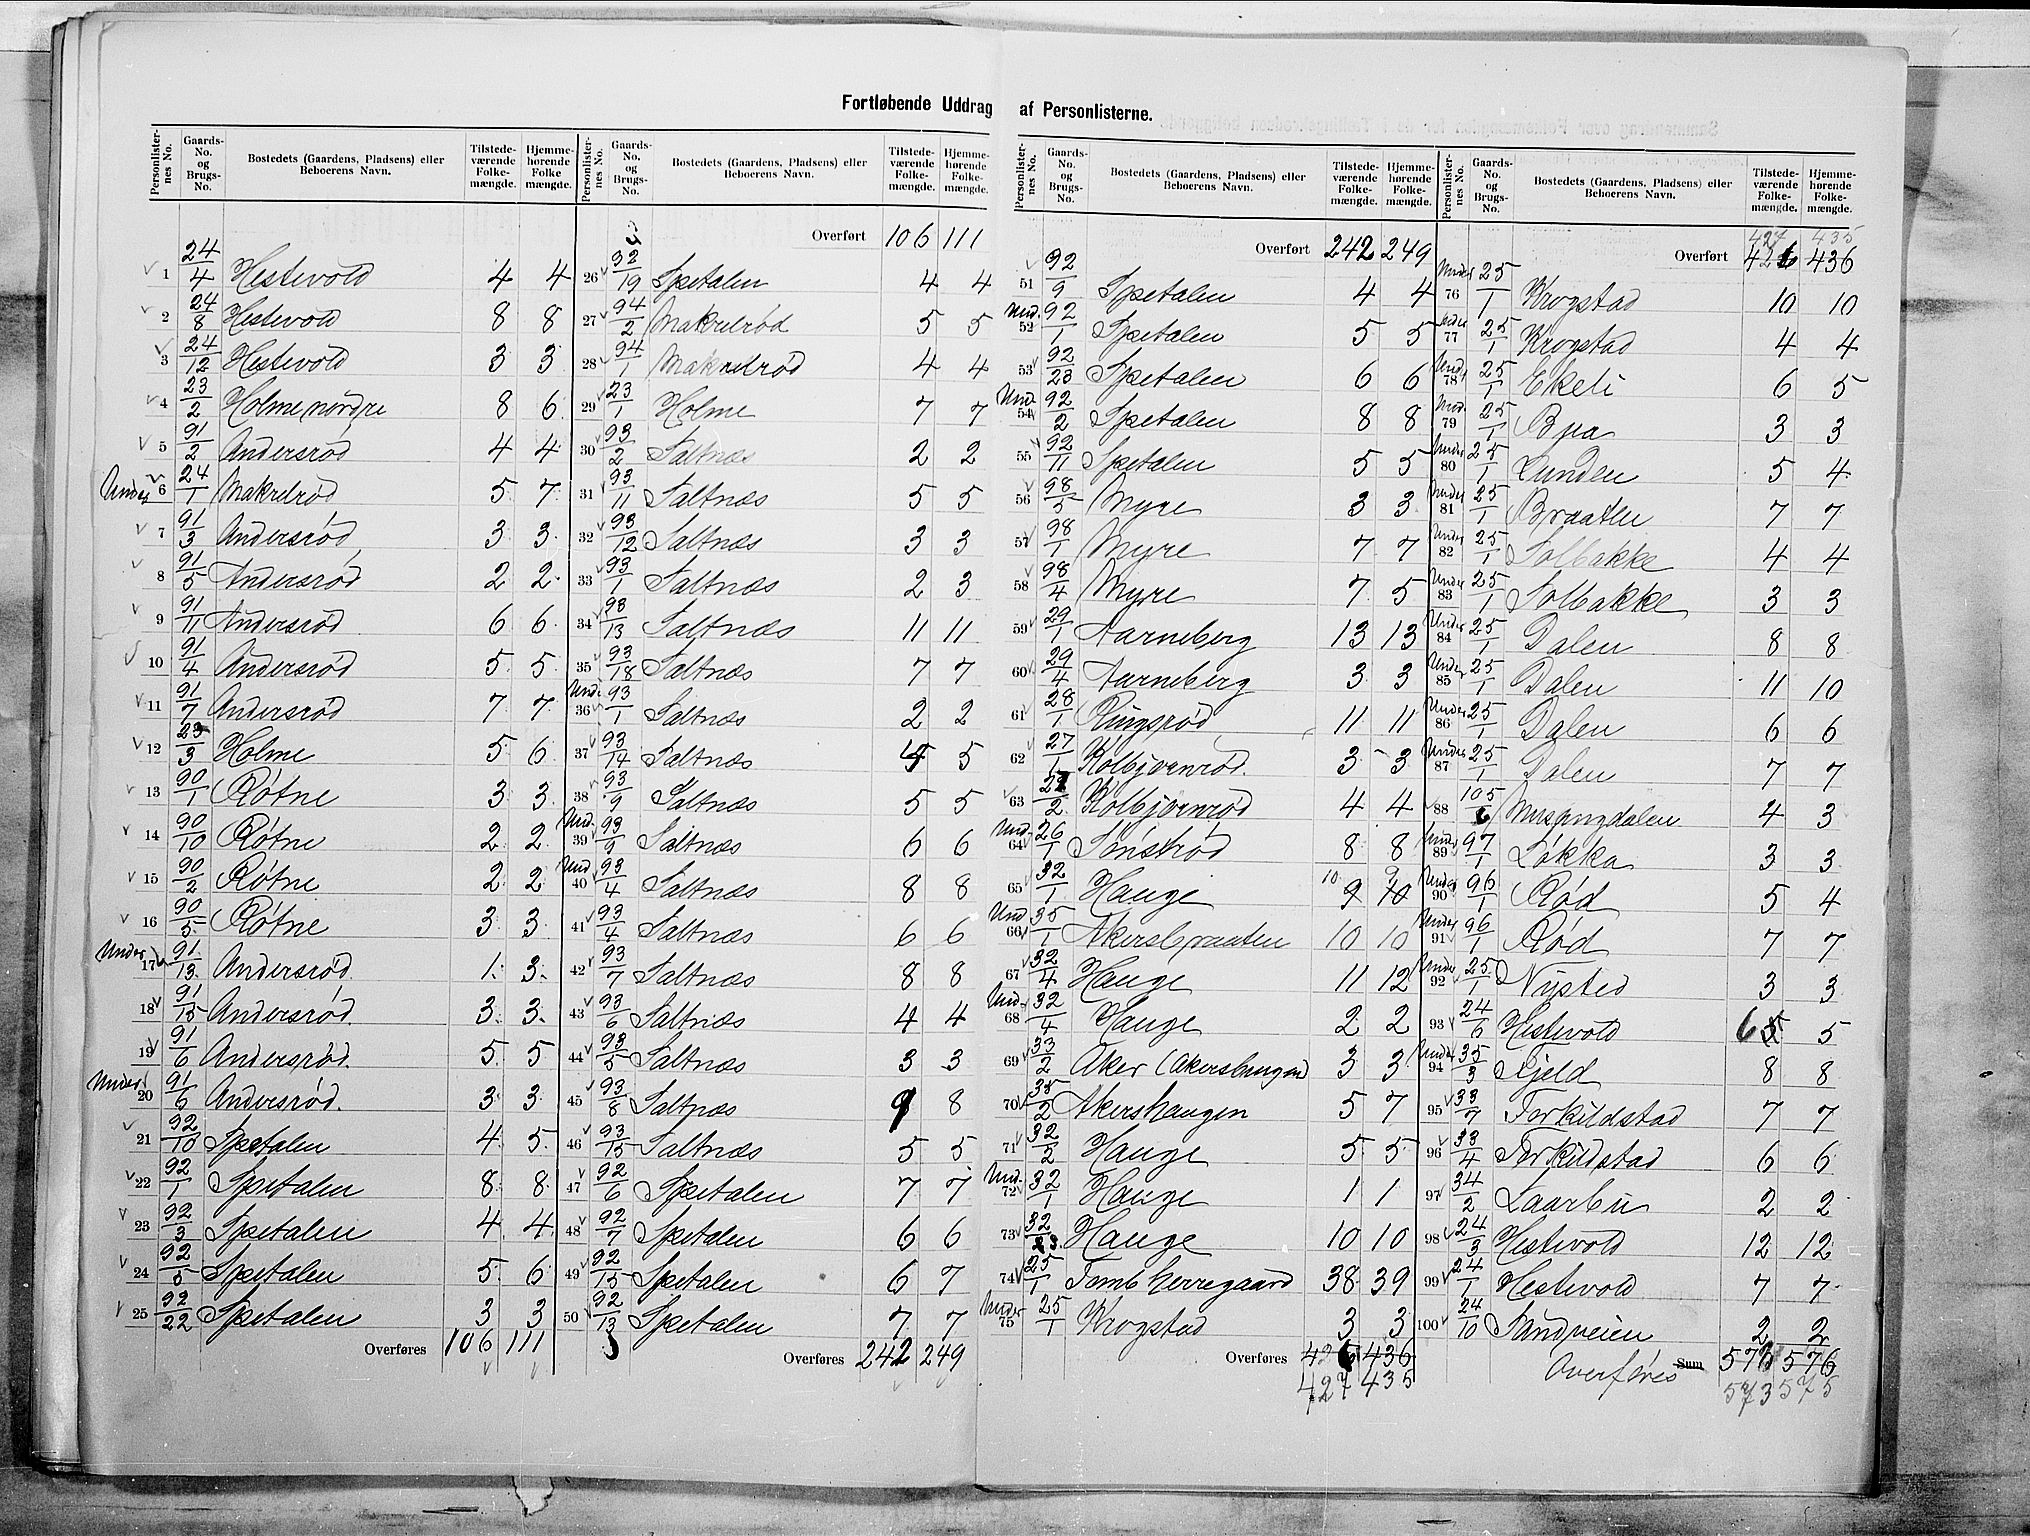 Fortløbende Uddrag af Personlisterne.
Personlister-nes No. | Gaards-No. og Brugs-No. | Bostedets (Gaardens, Pladsens) eller Beboerens Navn. | Tilstede-værende Folke-mængde. | Hjemme-hørende Folke mængde.
1 24/4 Hestevold 4 4
2 24/8 Hestevold 8 8
3 24/12 Hestevold 3 3
4 23/2 Holme nordre 8 6
5 91/2 Andersrød 4 4
Under 6 24/1 Makrelrød 5 7
7 91/3 Andersrød 3 3
8 91/5 Andersrød 2 2
9 91/11 Andersrød 6 6
10 91/4 Andersrød 5 5
11 91/7 Andersrød 7 7
12 23/3 Holme 5 6
13 90/1 Røtne 3 3
14 90/10 Røtne 2 2
15 90/2 Røtne 2 2
16 90/5 Røtne 3 3
Under 17 91/13 Andersrød 1 3
18 91/15 Andersrød 3 3
19 91/6 Andersrød 5 5
Under 20 91/6 Andersrød 3 3
21 92/10 Spetalen 4 5
22 92/1 Spetalen 8 8
23 92/3 Spetalen 4 4
24 92/5 Spetalen 5 6
25 92/22 Spetalen 3 3
Overføres 106 111
Personlister-nes No. | Gaards-No. og Brugs-No. | Bostedets (Gaardens, Pladsens) eller Beboerens Navn. | Tilstede-værende Folke-mængde. | Hjemme-hørende Folke-mængde.
Overført 106 111
26 92/19 Spetalen 4 4
27 94/2 Makrelrød 5 5
28 94/1 Makrelrød 4 4
29 23/1 Holme 7 7
30 93/2 Saltnæs 2 2
31 93/11 Saltnæs 5 5
32 93/12 Saltnæs 3 3
33 93/1 Saltnæs 2 3
34 93/13 Saltnæs 11 11
35 93/18 Saltnæs 7 7
Und. 36 93/1 Saltnæs 2 2
37 93/14 Saltnæs 5 5
38 93/9 Saltnæs 5 5
Und. 39 93/9 Saltnæs 6 6
Und 40 93/4 Saltnæs 8 8
41 93/4 Saltnæs 6 6
42 93/7 Saltnæs 8 8
43 93/6 Saltnæs 4 4
44 93/5 Saltnæs 3 3
45 93/8 Saltnæs 9 8
46 93/15 Saltnæs 5 5
47 92/6 Spetalen 7 7
48 92/7 Spetalen 6 6
49 92/15 Spetalen 6 7
50 92/13 Spetalen 7 7
Overføres 242 249
Personlister-nes No. | Gaards-No. og Brugs-No. | Bostedets (Gaardens, Pladsens) eller Beboerens Navn. | Tilstede-værende Folke-mængde. | Hjemme-hørende Folke-mængde.
Overført 242 249
51 92/9 Spetalen 4 4
Und. 52 92/1 Spetalen 5 5
53 92/23 Spetalen 6 6
Und. 54 92/2 Spetalen 8 8
55 92/11 Spetalen 5 5
56 98/5 Myre 3 3
57 98/1 Myre 7 7
58 98/4 Myre 7 5
59 29/1 Aarneberg 13 13
60 29/4 Aarneberg 3 3
61 28/1 Ringsrød 11 11
62 27/1 Kolbjørnrød 3 3
63 27/2 Kolbjørnrød 4 4
Und. 64 26/1 Sønstrød 8 8
65 32/1 Hauge 10 9 9 10
Und 66 35/1 Akersbraaten 10 10
67 32/4 Hauge 11 12
Und. 68 32/4 Hauge 2 2
69 33/2 Aker (Akershaugen) 3 3
70 35/2 Akershaugen 5 7
71 32/2 Hauge 5 5
Und. 72 32/1 Hauge 1 1
73 32/23 Hauge 10 10
74 25/1 Tombherregaard 38 39
Under 75 25/1 Krogstad 3 3
Overføres 426 436
427 435
Personlister-nes No. | Gaards-No. og Brugs-No. | Bostedets (Gaardens, Pladsens) eller Beboerens Navn. | Tilstede-værende Folke-mængde. | Hjemme-hørende Folke-mængde.
427 435
Overført 426 436
Under 76 25/1 Krogstad 10 10
Under 77 25/1 Krogstad 4 4
Und. 78 25/1 Ekeli 6 5
Und. 79 25/1 Bya 3 3
Under 80 25/1 Lunden 5 4
Under 81 25/1 Braaten 7 7
Under 82 25/1 Solbakke 4 4
Under 83 25/1 Solbakke 3 3
Under 84 25/1 Dalen 8 8
Under 85 25/1 Dalen 11 10
Under 86 25/1 Dalen 6 6
Under 87 25/1 Dalen 7 7
88 105/6 4 3
Under 89 97/1 Løkka 3 3
Under 90 96/1 Rød 5 4
Under 91 96/1 Rød 7 7
Under 92 25/1 Nysted 3 3
93 24/6 Hestevold 6 5 5
Under 94 35/3 Kjeld 8 8
95 33/7 Torkildstad 7 7
96 33/4 Torkildstad 6 6
97 34/2 Laarbu 2 2
98 24/3 Hestevold 12 12
99 24/1 Hestevold 7 7
100 24/10 Sandveien 2 2
Overføres Sum 572 576
573 575